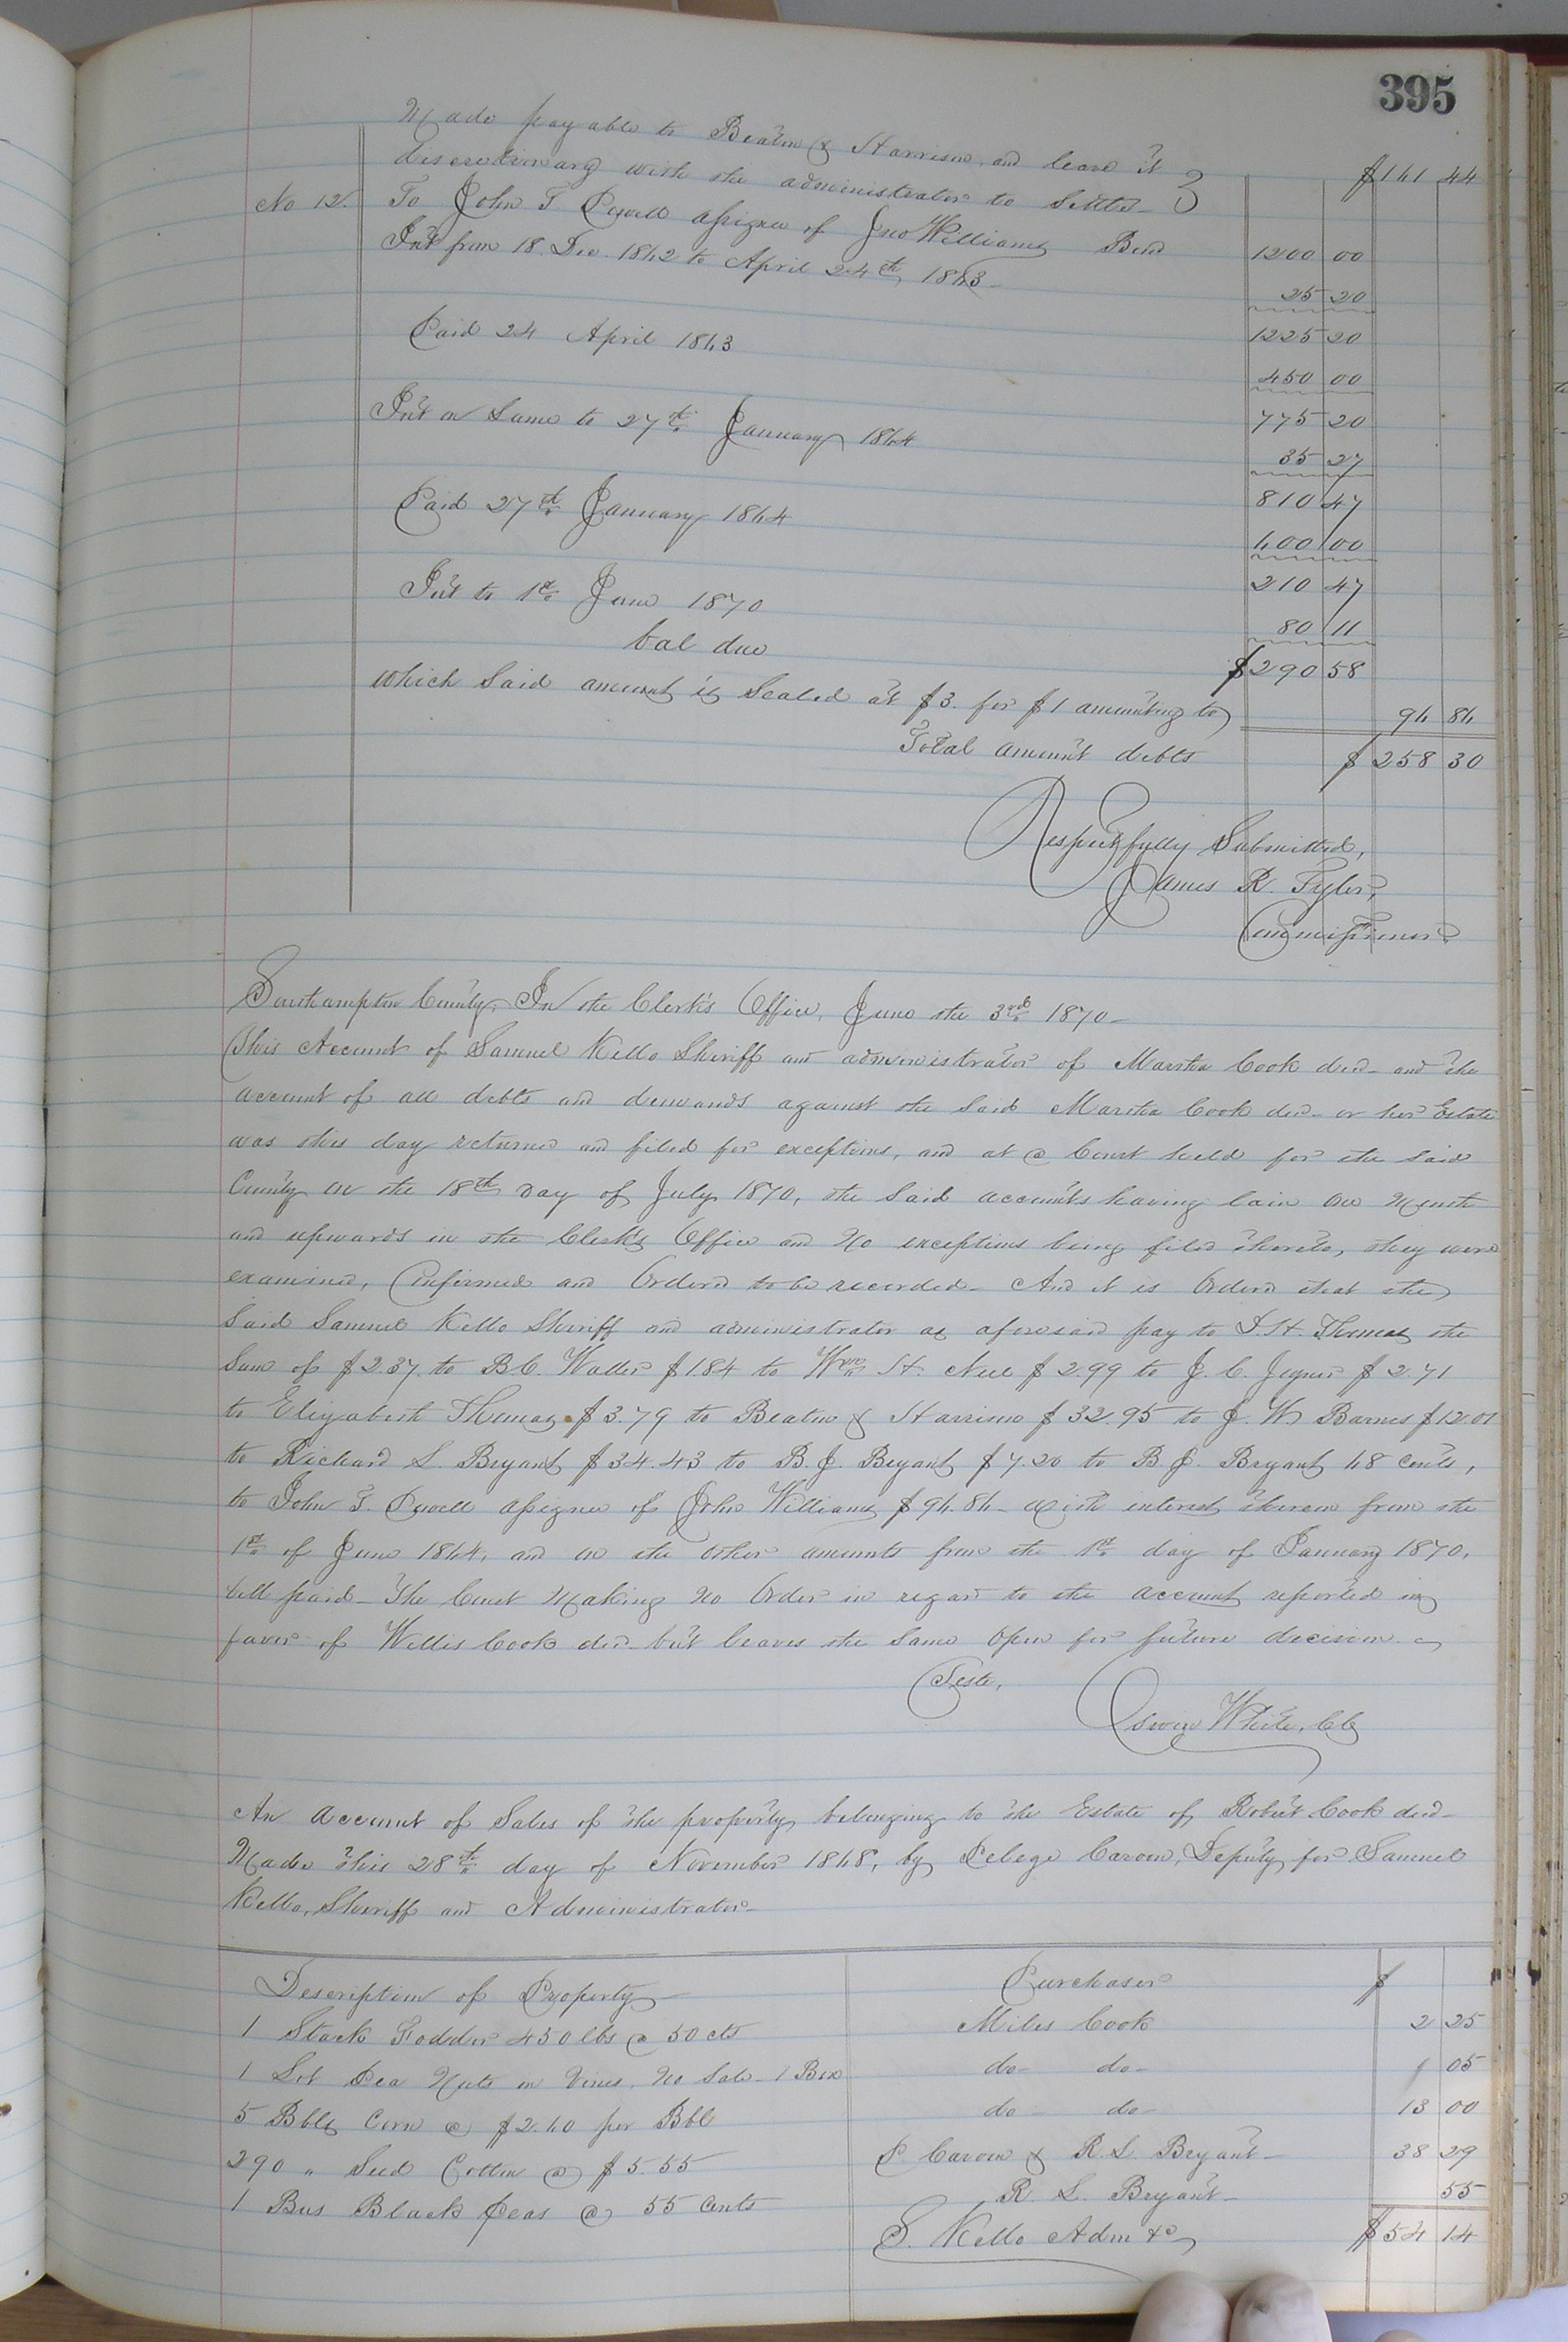 395
Made payable to Beaton & Harrison, and leave it
discretionary with the administrator to Settle- } $161 44
No 12. To John T Powell assignee of Jno Williams Bond 1200 00
Int from 18. Dec. 1862 to April 24th 1863- 25 20
1225 20
Paid 24 April 1863 450 00
775 20
Int on Same to 27th January 1864 35 27
810 47
Paid 27th January 1864 600 00
210 47
Int to 1st June 1870 80 11
bal due $290 58
Which Said amount is Scaled at $3. for $1 amounting to 96 86
Total amount debts $258 30
Respectfully Submitted,
James R. Tyler,
Commissioner
Southampton County, In the Clerk's Office, June the 3rd 1870-
This Account of Samuel Kello Sheriff and administrator of Martha Cook decd- and the
account of all debts and demands against the Said Martha Cook decd- or her Estate
was this day returned and filed for exceptions, and at a Court held for the said
County on the 18th day of July 1870, the Said accounts having lain one Month
and upwards in the Clerk's Office and No exceptions being filed thereto, they were
examined, Confirmed and Ordered to be recorded- And it is Ordered that the
Said Samuel Kello Sheriff and administrator as aforesaid pay to I. H. Thomas the
Sum of $2.37. to B.C. Waller $1.84 to Wm H. Neel $2.99 to J. C. Joyner $2.71
to Elizabeth Thomas $3.79 to Beaton & Harrison $32.95 to J. W. Barnes $12.01
to Richard L. Bryant $34.43 to B. J. Bryant $7.20 to B. J. Bryant 68 cents,
to John T. Powell assignee of John Williams $96.86- with interest thereon from the
1st of June 1864, and on the other amounts from the 1st day of January 1870,
till paid- The Court Making No Order in regard to the account reported in
favor of Willis Cook decd- but leaves the Same Open for future decision-
Teste,
Edwin White, CC
An Account of Sales of the property belonging to the Estate of Robert Cook decd-
Made this 28th day of November 1868, by Deputy for Samuel
Kello, Sheriff and Administrator-
Description of Property- Purchaser $
1 Stack Fodder 450 lbs @ 50 cts Miles Cook 2 25
1 Lot Pea Nuts in Vines, No Sale- 1 Box do- do- 1 05
5 Bbls Corn @ $2.60 per Bbl do- do- 13 00
290 " Seed Cotton @ $5.55 & R. L. Bryant- 38 29
1 Bus Black peas @ 55 cents R. L. Bryant- 55
S. Kello Adm &c $54 14